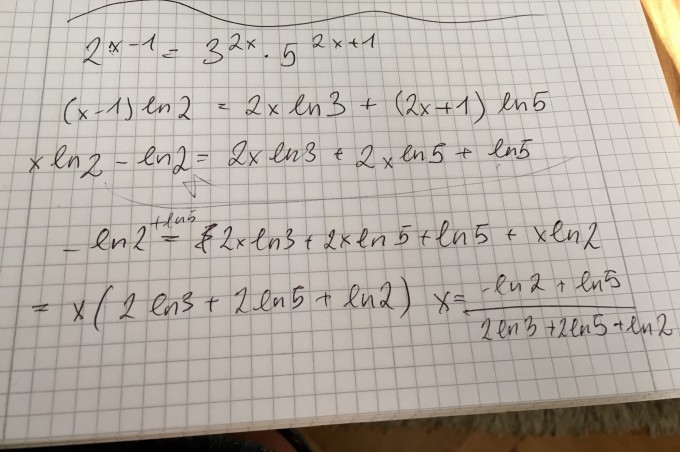 2^{x-1} = 3^{2x} · 5^{2x+1}
(x-1) ln2 = 2x ln3 + (2x+1) ln5
x ln2 - ln2 = 2x ln3 + 2x ln5 + ln5
- ln2 + ln5 = 2x ln3 + 2x ln5 + ln5 + x ln2
= x ( 2 ln3 + 2 ln5 + ln2 ) x = \frac{- ln2 + ln5}{2 ln3 + 2 ln5 + ln2}